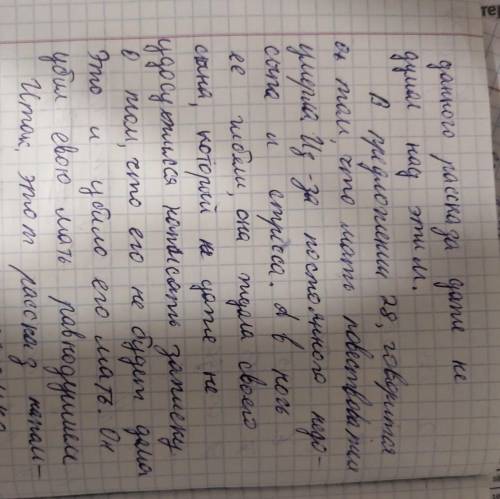 данного рассказа даже не
думал над этим.
В предложении 28, говорится
о том, что мать повествователя
умерла Из-за постоянного недо-
сыпа и стресса. А в ночь
её гибели, она ждала своего
сына, который не даже не
удосужился написать записку
о том, что его не будет дома
Это и убило его мать. Он
убил свою мать равнодушием
Итак, этот рассказ напом-